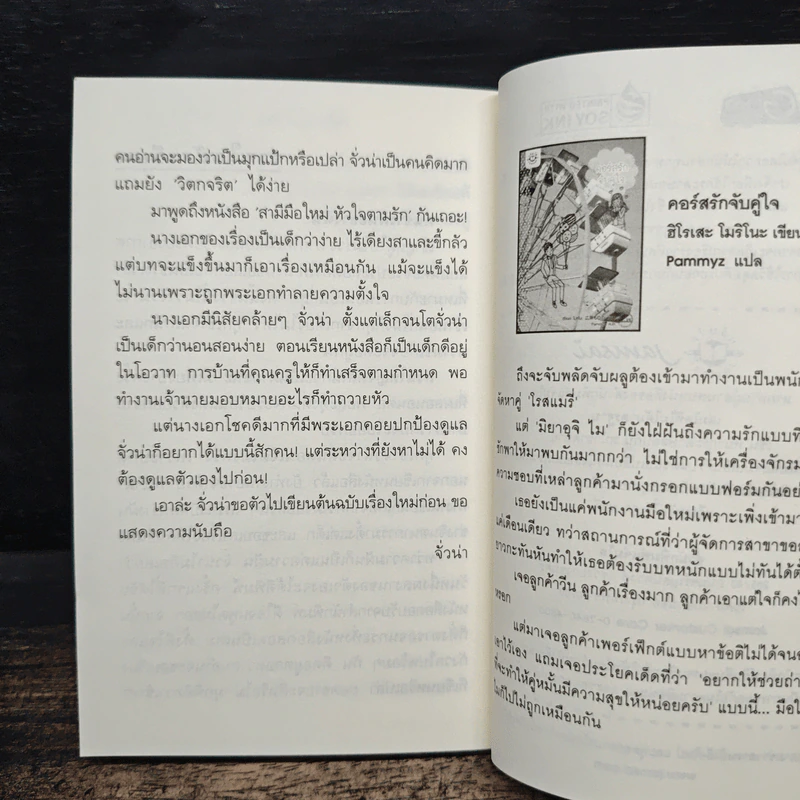 คนอ่านจะมองว่าเป็นมุกแป้กหรือเปล่า จั่วน่าเป็นคนคิดมาก
แถมยัง ‘วิตกจริต’ ได้ง่าย
มาพูดถึงหนังสือ ‘สามีมือใหม่ หัวใจตามรัก’ กันเถอะ!
นางเอกของเรื่องเป็นเด็กว่าง่าย ไร้เดียงสาและขี้กลัว
แต่บทจะแข็งขึ้นมาก็เอาเรื่องเหมือนกัน แม้จะแข็งได้
ไม่นานเพราะถูกพระเอกทำลายความตั้งใจ
นางเอกมีนิสัยคล้ายๆ จั่วน่า ตั้งแต่เล็กจนโตจั่วน่า
เป็นเด็กว่านอนสอนง่าย ตอนเรียนหนังสือก็เป็นเด็กดีอยู่
ในโอวาท การบ้านที่คุณครูให้ก็ทำเสร็จตามกำหนด พอ
ทำงานเจ้านายมอบหมายอะไรก็ทำถวายหัว
แต่นางเอกโชคดีมากที่มีพระเอกคอยปกป้องดูแล
จั่วน่าก็อยากได้แบบนี้สักคน! แต่ระหว่างที่ยังหาไม่ได้ คง
ต้องดูแลตัวเองไปก่อน!
เอาล่ะ จั่วน่าขอตัวไปเขียนต้นฉบับเรื่องใหม่ก่อน ขอ
แสดงความนับถือ
จั่วน่า
คอร์สรักจับคู่ใจ
ฮิโรเสะ โมริโนะ เขียน
Pammyz แปล
ถึงจะจับพลัดจับผลูต้องเข้ามาทำงานเป็นพนัก
จัดหาคู่ ‘โรสแมรี่’
แต่ ‘มิยาอุจิ ไม’ ก็ยังใฝ่ฝันถึงความรักแบบที่
รักพาให้มาพบกันมากกว่า ไม่ใช่การให้เครื่องจักรม
ความชอบที่เหล่าลูกค้ามานั่งกรอกแบบฟอร์มกันอย่
เธอยังเป็นแค่พนักงานมือใหม่เพราะเพิ่งเข้ามา
แค่เดือนเดียว ทว่าสถานการณ์ที่ว่าผู้จัดการสาขาขอ
ยาวกะทันหันทำให้เธอต้องรับบทหนักแบบไม่ทันได้ตั้
เจอลูกค้าวีน ลูกค้าเรื่องมาก ลูกค้าเอาแต่ใจก็คงไ
หรอก
แต่มาเจอลูกค้าเพอร์เฟ็กต์แบบหาข้อติไม่ได้จน
เอาไว้เอง แถมเจอประโยคเด็ดที่ว่า ‘อยากให้ช่วยถ่า
ที่จะทำให้คู่หมั้นมีความสุขให้หน่อยครับ’ แบบนี้... มือใ
ไมก็ไปไม่ถูกเหมือนกัน